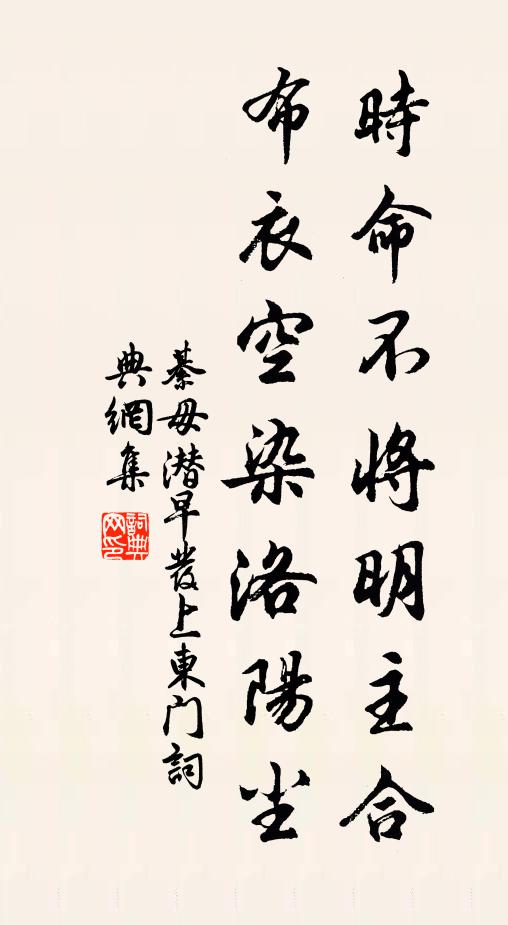 時命不將明主合
布衣空染洛陽尘
綦毋潜早發上東门詞
典網集
詞典网印